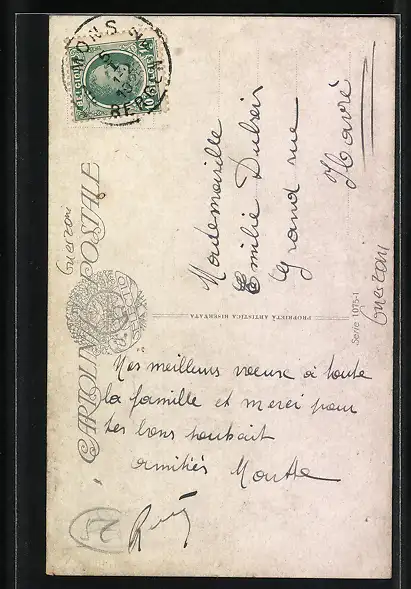 MONS
BERGEN
CARTOLINA POSTALE
PROPRIETÀ ARTISTICA RISERVATA
Serie 1075-1
Mademoiselle
Emilie Dubois
Grand rue
Havré
Guerzoni
Guerzoni
Mes meilleurs voeux à toute
la famille et merci pour
tes bons souhait
amitiés